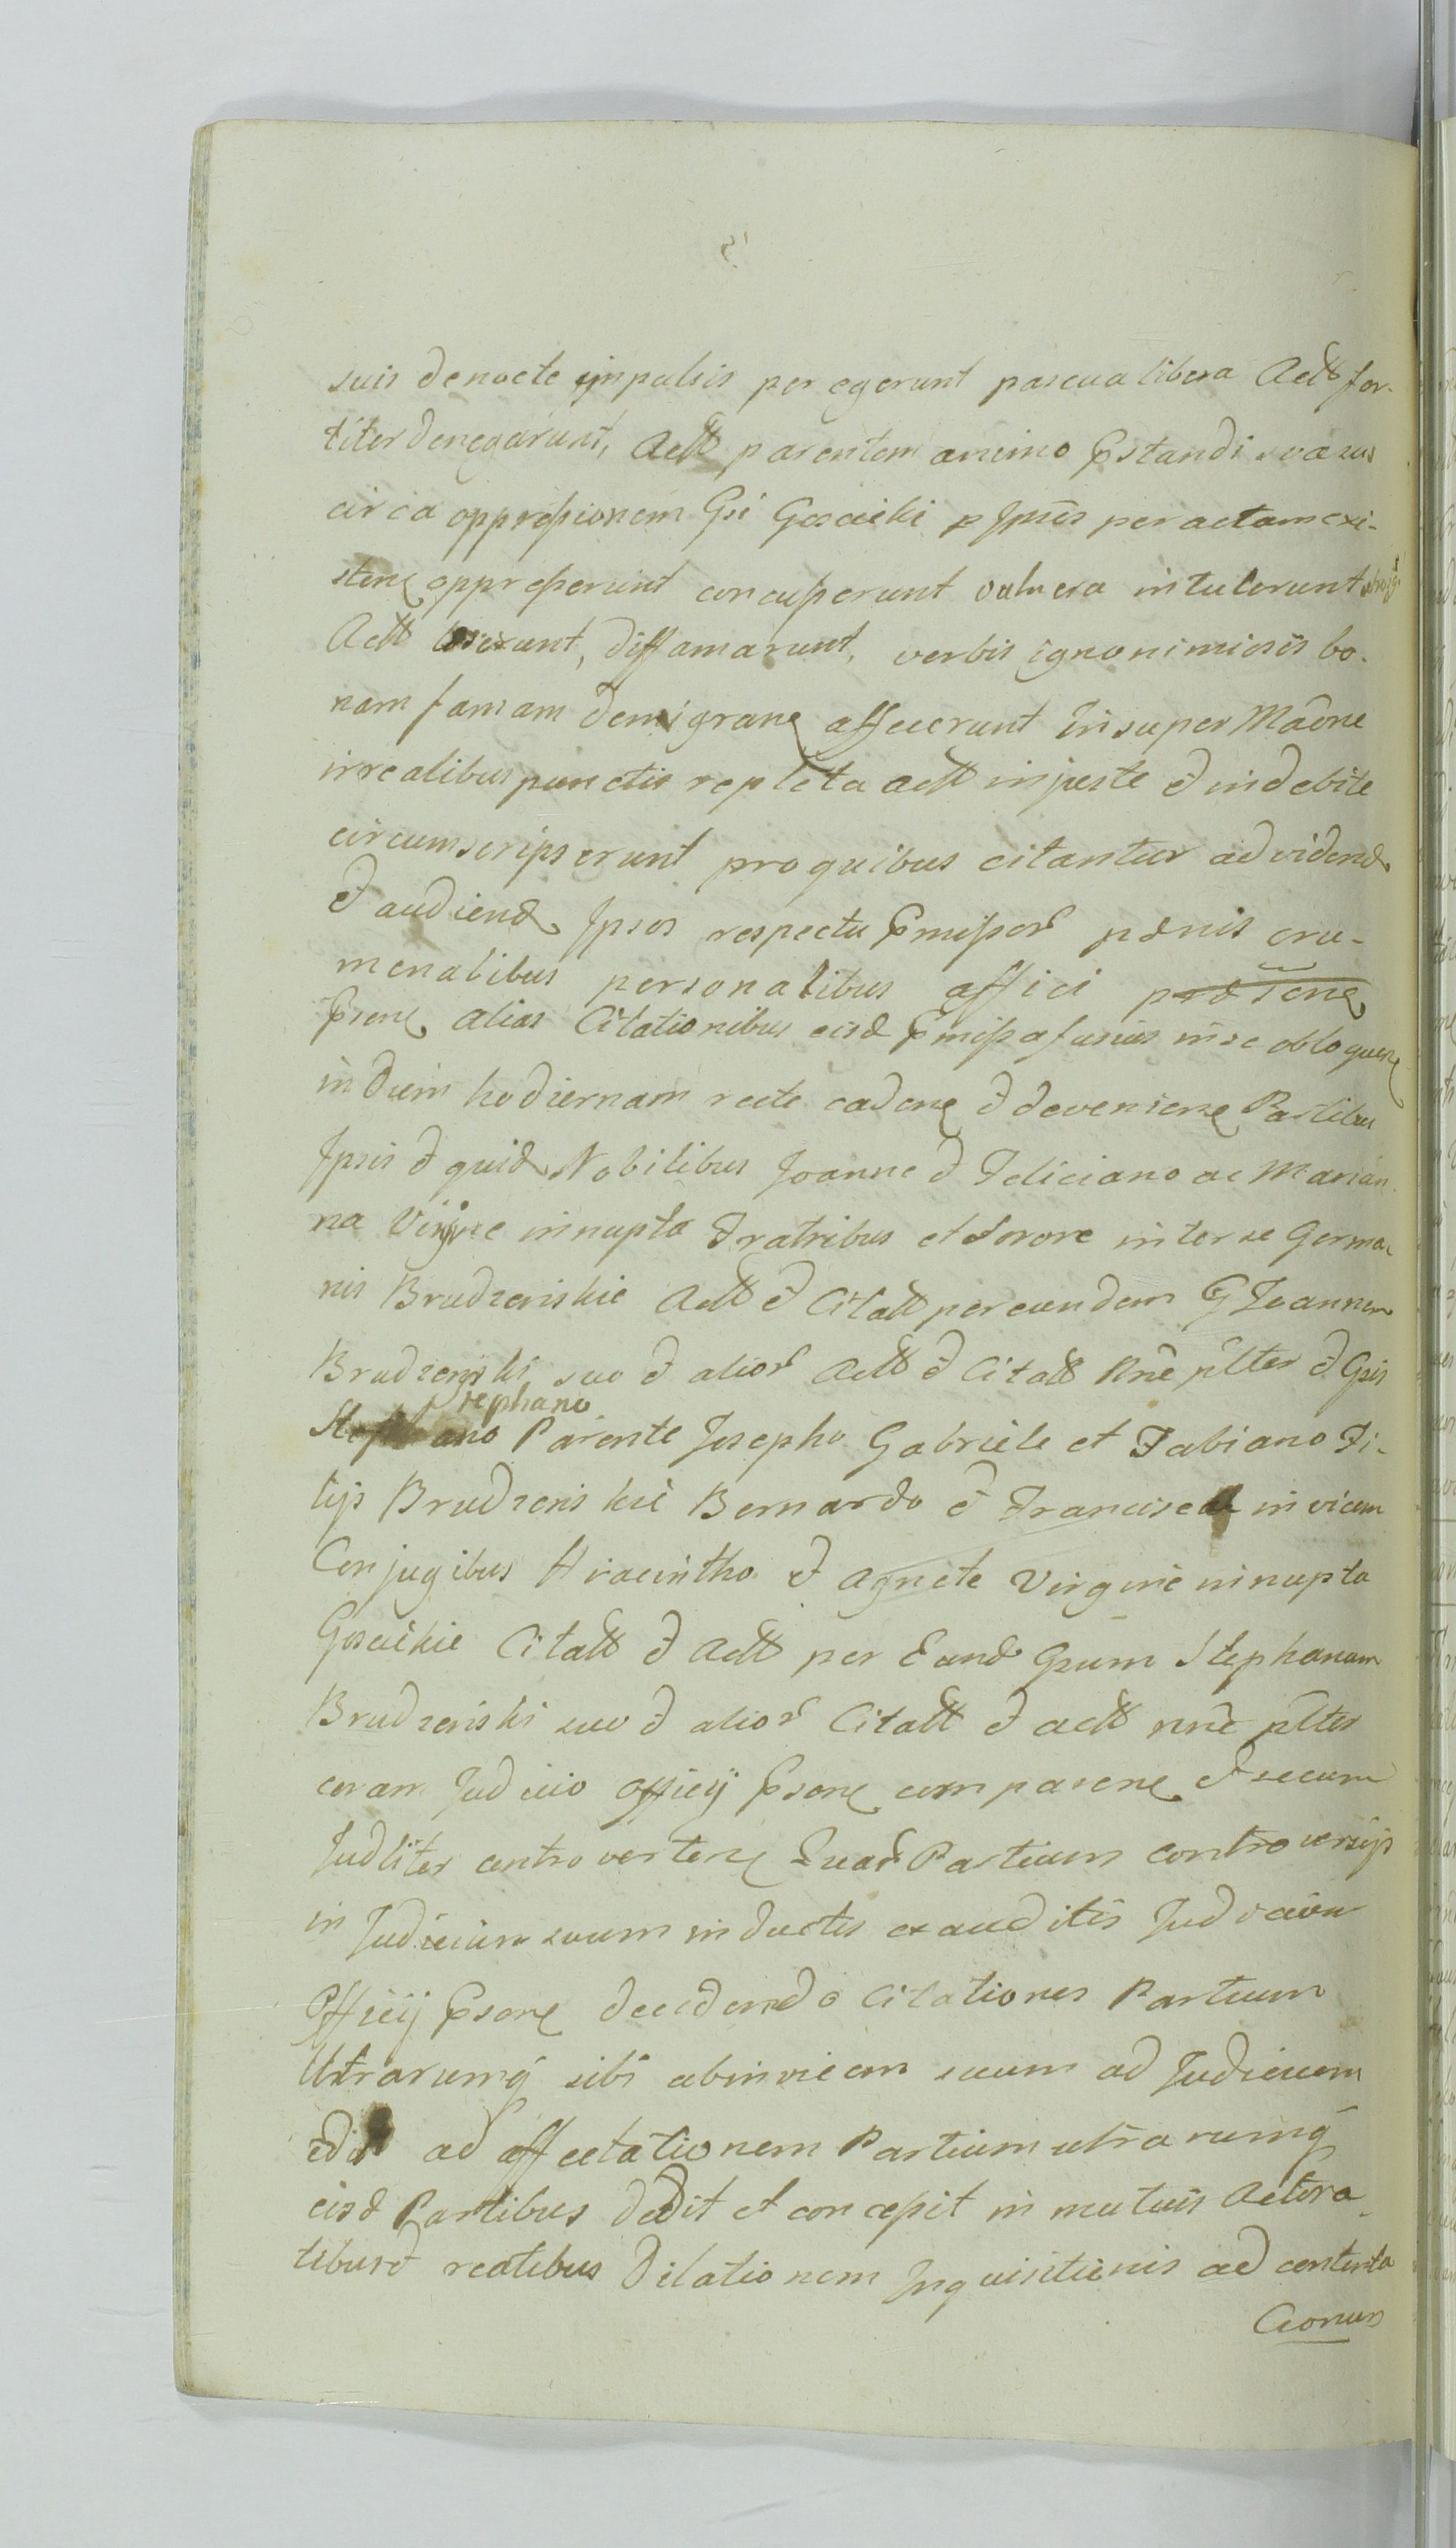 suis de nocte impulsis per egerunt pascua libera Actt for-
titer denegarunt, Actt parentem animo Pstandi
circa oppressionem Gsi Gosciski p Ipsos per actam exi-
sten oppresserunt concusserunt vulnera intulerunt
Actt leserunt, diffamarunt, verbis ignonimiosis bo-
nam famam denigran affecerunt Insuper Maone
irrealibus punctis repleta actt injuste & indebite
circumscripserunt pro quibus citantur ad vidend
& audiend Ipsos respectu Pmissor pænis cru-
menalibus personalibus affici
Psen alias Citationibus eisd Pmissa fusius in se obloquen
in diem hodiernam recte caden & devenien Partibus
Ipsis & quid Nobilibus Joanne & Feliciano ac Marian-
na Virgine innupta Fratribus et Sorore inter se Germa-
nis Brudzenskie Actt & Citatt per eundem G Joannem
Brudzenski suo & alior Actt & Citatt nne plter & Gsis
Stephano
Parente Josepho Gabriele et Fabiano Fi-
lijs Brudzenskie Bernardo & Francisca invicem
Conjugibus Hiacintho & Agnete Virgine innupta
Gosciskie Citatt & Actt per Eund Gsum Stephanum
Brudzenski suo & alior Citatt & actt nne pltes
coram Judicio Officij Psen comparen & secum
Judliter controverten Quar Partium controversijs
in Judicium suum inductis exauditis Jud
Officij Psen decidendo Citationes Partium
Utrarumq sibi abinvicem suum ad Judicium
ad affectationem Partium utrarumq
eisd Partibus dedit et concessit in mutuis Actora-
tibus & reatibus Dilationem Inquisitionis ad contenta
Cionum